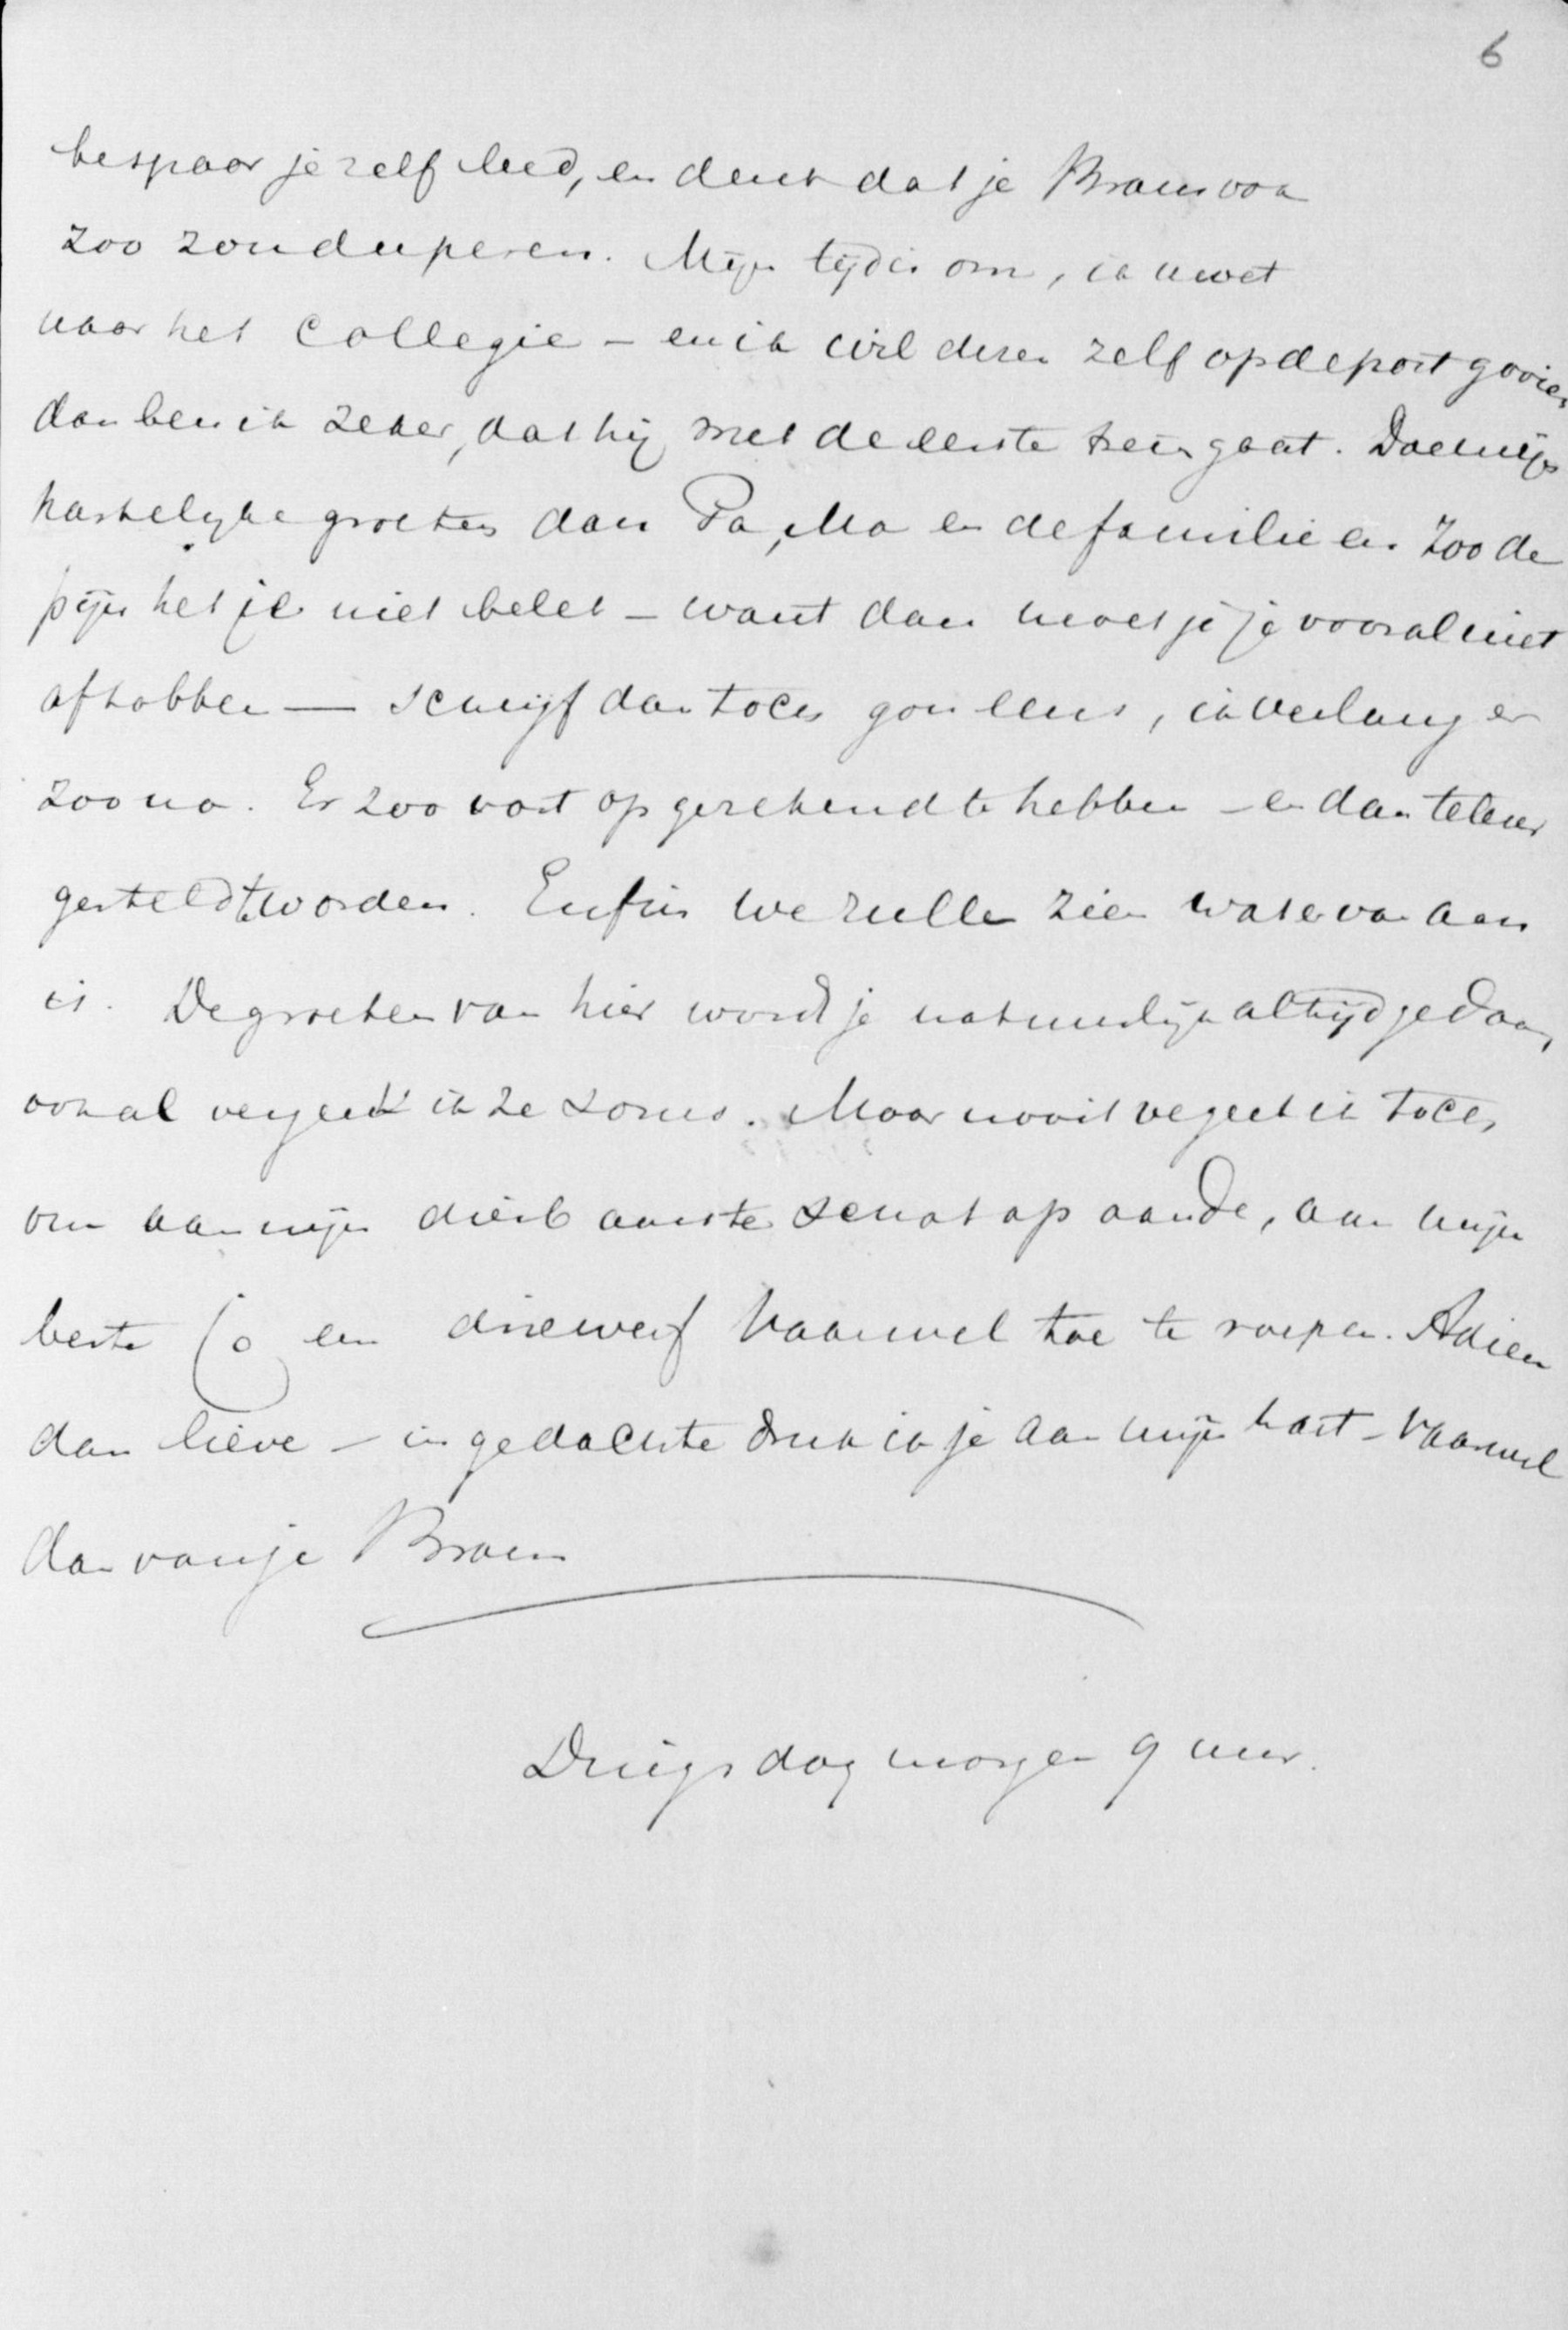 6
bespaar je zelf leed, en denk dat je Bram ook
zoo zou duperen. Mijn tijd is om, ik moet
naar het Collegie – en ik wil deze zelf op de post gooien
dan ben ik zeker, dat hij met de eerste trein gaat. Doe mijn
hartelijke groeten aan Pa, Ma en de familie en zoo de
pijn het je niet belet – want dan moet je je vooral niet
aftobben — schrijf dan toch gou eens, ik verlang er
zoo na. Er zoo vast op gerekend te hebben – en dan teleur
gesteld te worden. Enfin we zullen zien wat er van aan
is. De groeten van hier word je natuurlijk altijd gedaan,
ook al vergeet ik ze soms. Maar nooit vergeet ik toch,
om aan mijn dierbaarste schat op aarde, aan mijn
beste Jo een driewerf Vaarwel toe te roepen. Adieu
dan lieve – in gedachte druk ik je aan mijn hart – Vaarwel
dan van je Bram
Dingsdag morgen 9 uur.